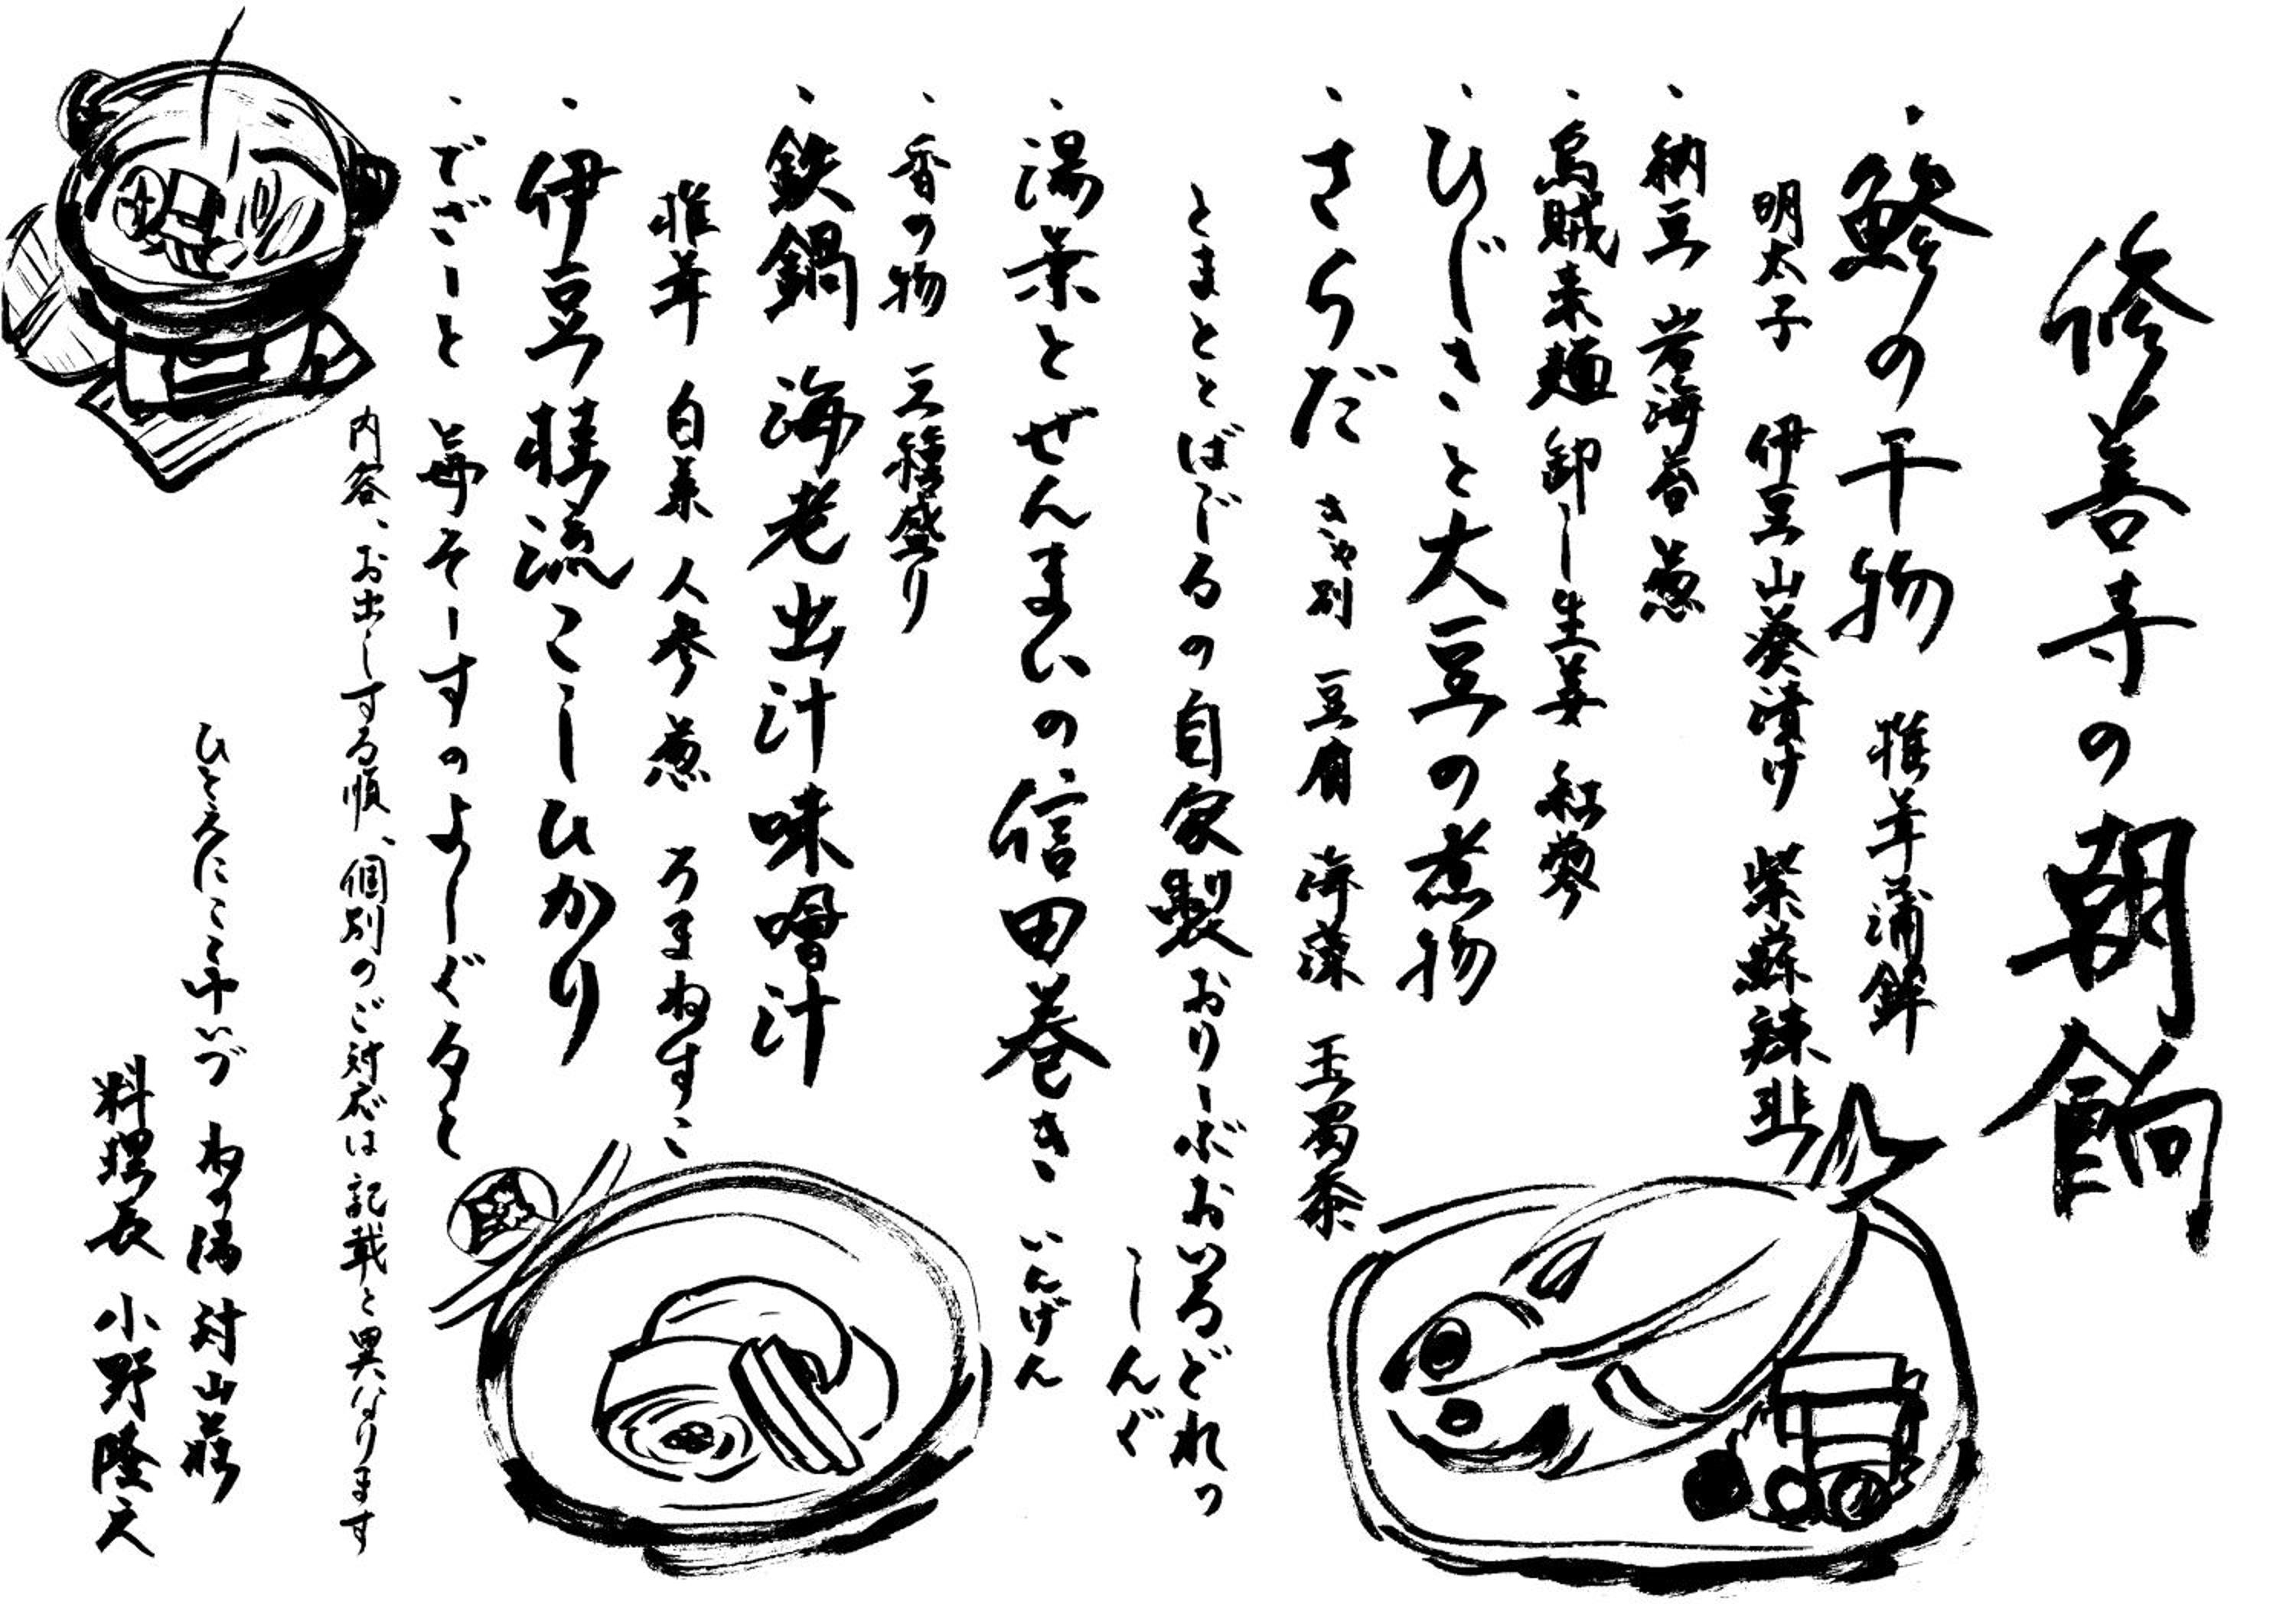 修善寺の朝餉
、鯵の干物 椎茸蒲鉾
明太子 伊豆山葵漬け 紫蘇辣韭
、納豆 岩海苔 葱
、烏賊素麺 卸し生姜 紅蓼
、ひじきと大豆の煮物
、さらだ きゃ別 豆腐 海藻 玉蜀黍
とまととばじるの自家製おりーぶおいるどれっ
しんぐ
、湯葉とぜんまいの信田巻き いんげん
、香の物 三種盛り
、鉄鍋 海老出汁味噌汁
椎茸 白菜 人参 葱 ろまねすこ
、伊豆錆流こしひかり
、でざーと 苺そーすのよーぐると
内容、お出しする順、個別のご対応は記載と異なります
ひとえにここ伊づ ねの湯 対山荘
料理長 小野隆之